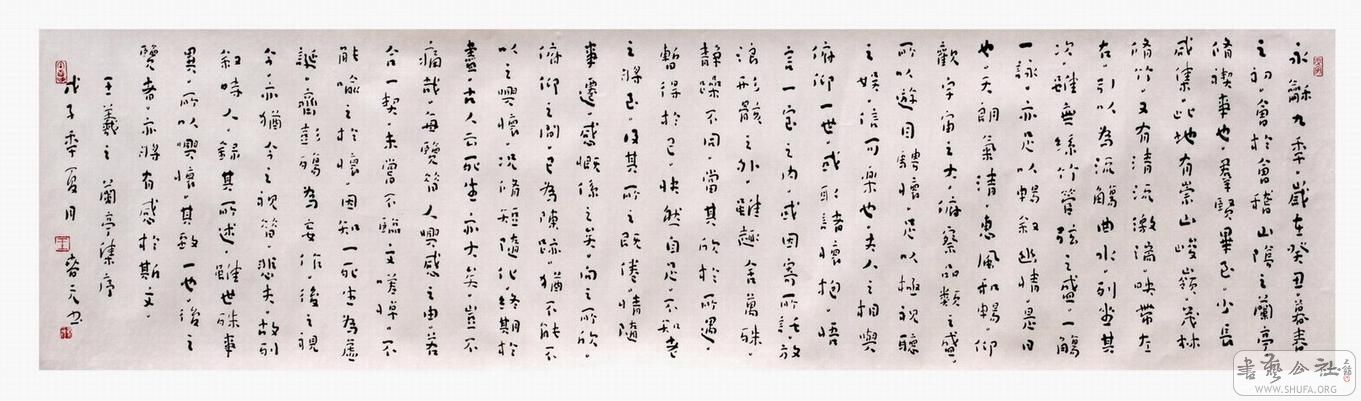 永龢九年。歲在癸丑。暮春
之初。會於會稽山陰之蘭亭
脩禊事也。羣賢畢至。少長
咸集。此地有崇山峻嶺。茂林
脩竹。又有清流激湍。映帶左
右。引以為流觴曲水。列坐其
次。雖無絲竹管弦之盛。一觴
一詠。亦足以暢敘幽情。是日
也。天朗氣清。惠風和暢。仰
觀宇宙之大。俯察品類之盛。
所以遊目騁懷。足以極視聽
之娛。信可樂也。夫人之相與
俯仰一世。或取諸懷抱。悟
言一室之內。或因寄所託。放
浪形骸之外。雖趣舍萬殊。
靜躁不同。當其欣於所遇。
暫得於己。快然自足。不知老
之將至。及其所之既倦。情隨
事遷。感慨係之矣。向之所欣。
俯仰之間。已為陳跡。猶不能不
以之興懷。況脩短隨化。終期於
盡。古人云。死生亦大矣。豈不
痛哉。每覽昔人興感之由。若
合一契。未嘗不臨文嗟悼。不
能喻之於懷。固知一死生為虛
誕。齊彭殤為妄作。後之視
今。亦猶今之視昔。悲夫。故列
敘時人。錄其所述。雖世殊事
異。所以興懷。其致一也。後之
覽者。亦將有感於斯文。
王羲之 蘭亭集序
戊子年夏月 元書
書藝公社
WWW.SHUFA.ORG